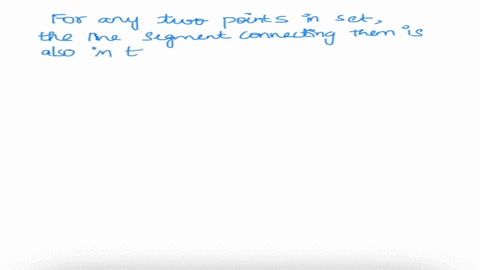 For any two points in set,
the line segment connecting them is
also in t